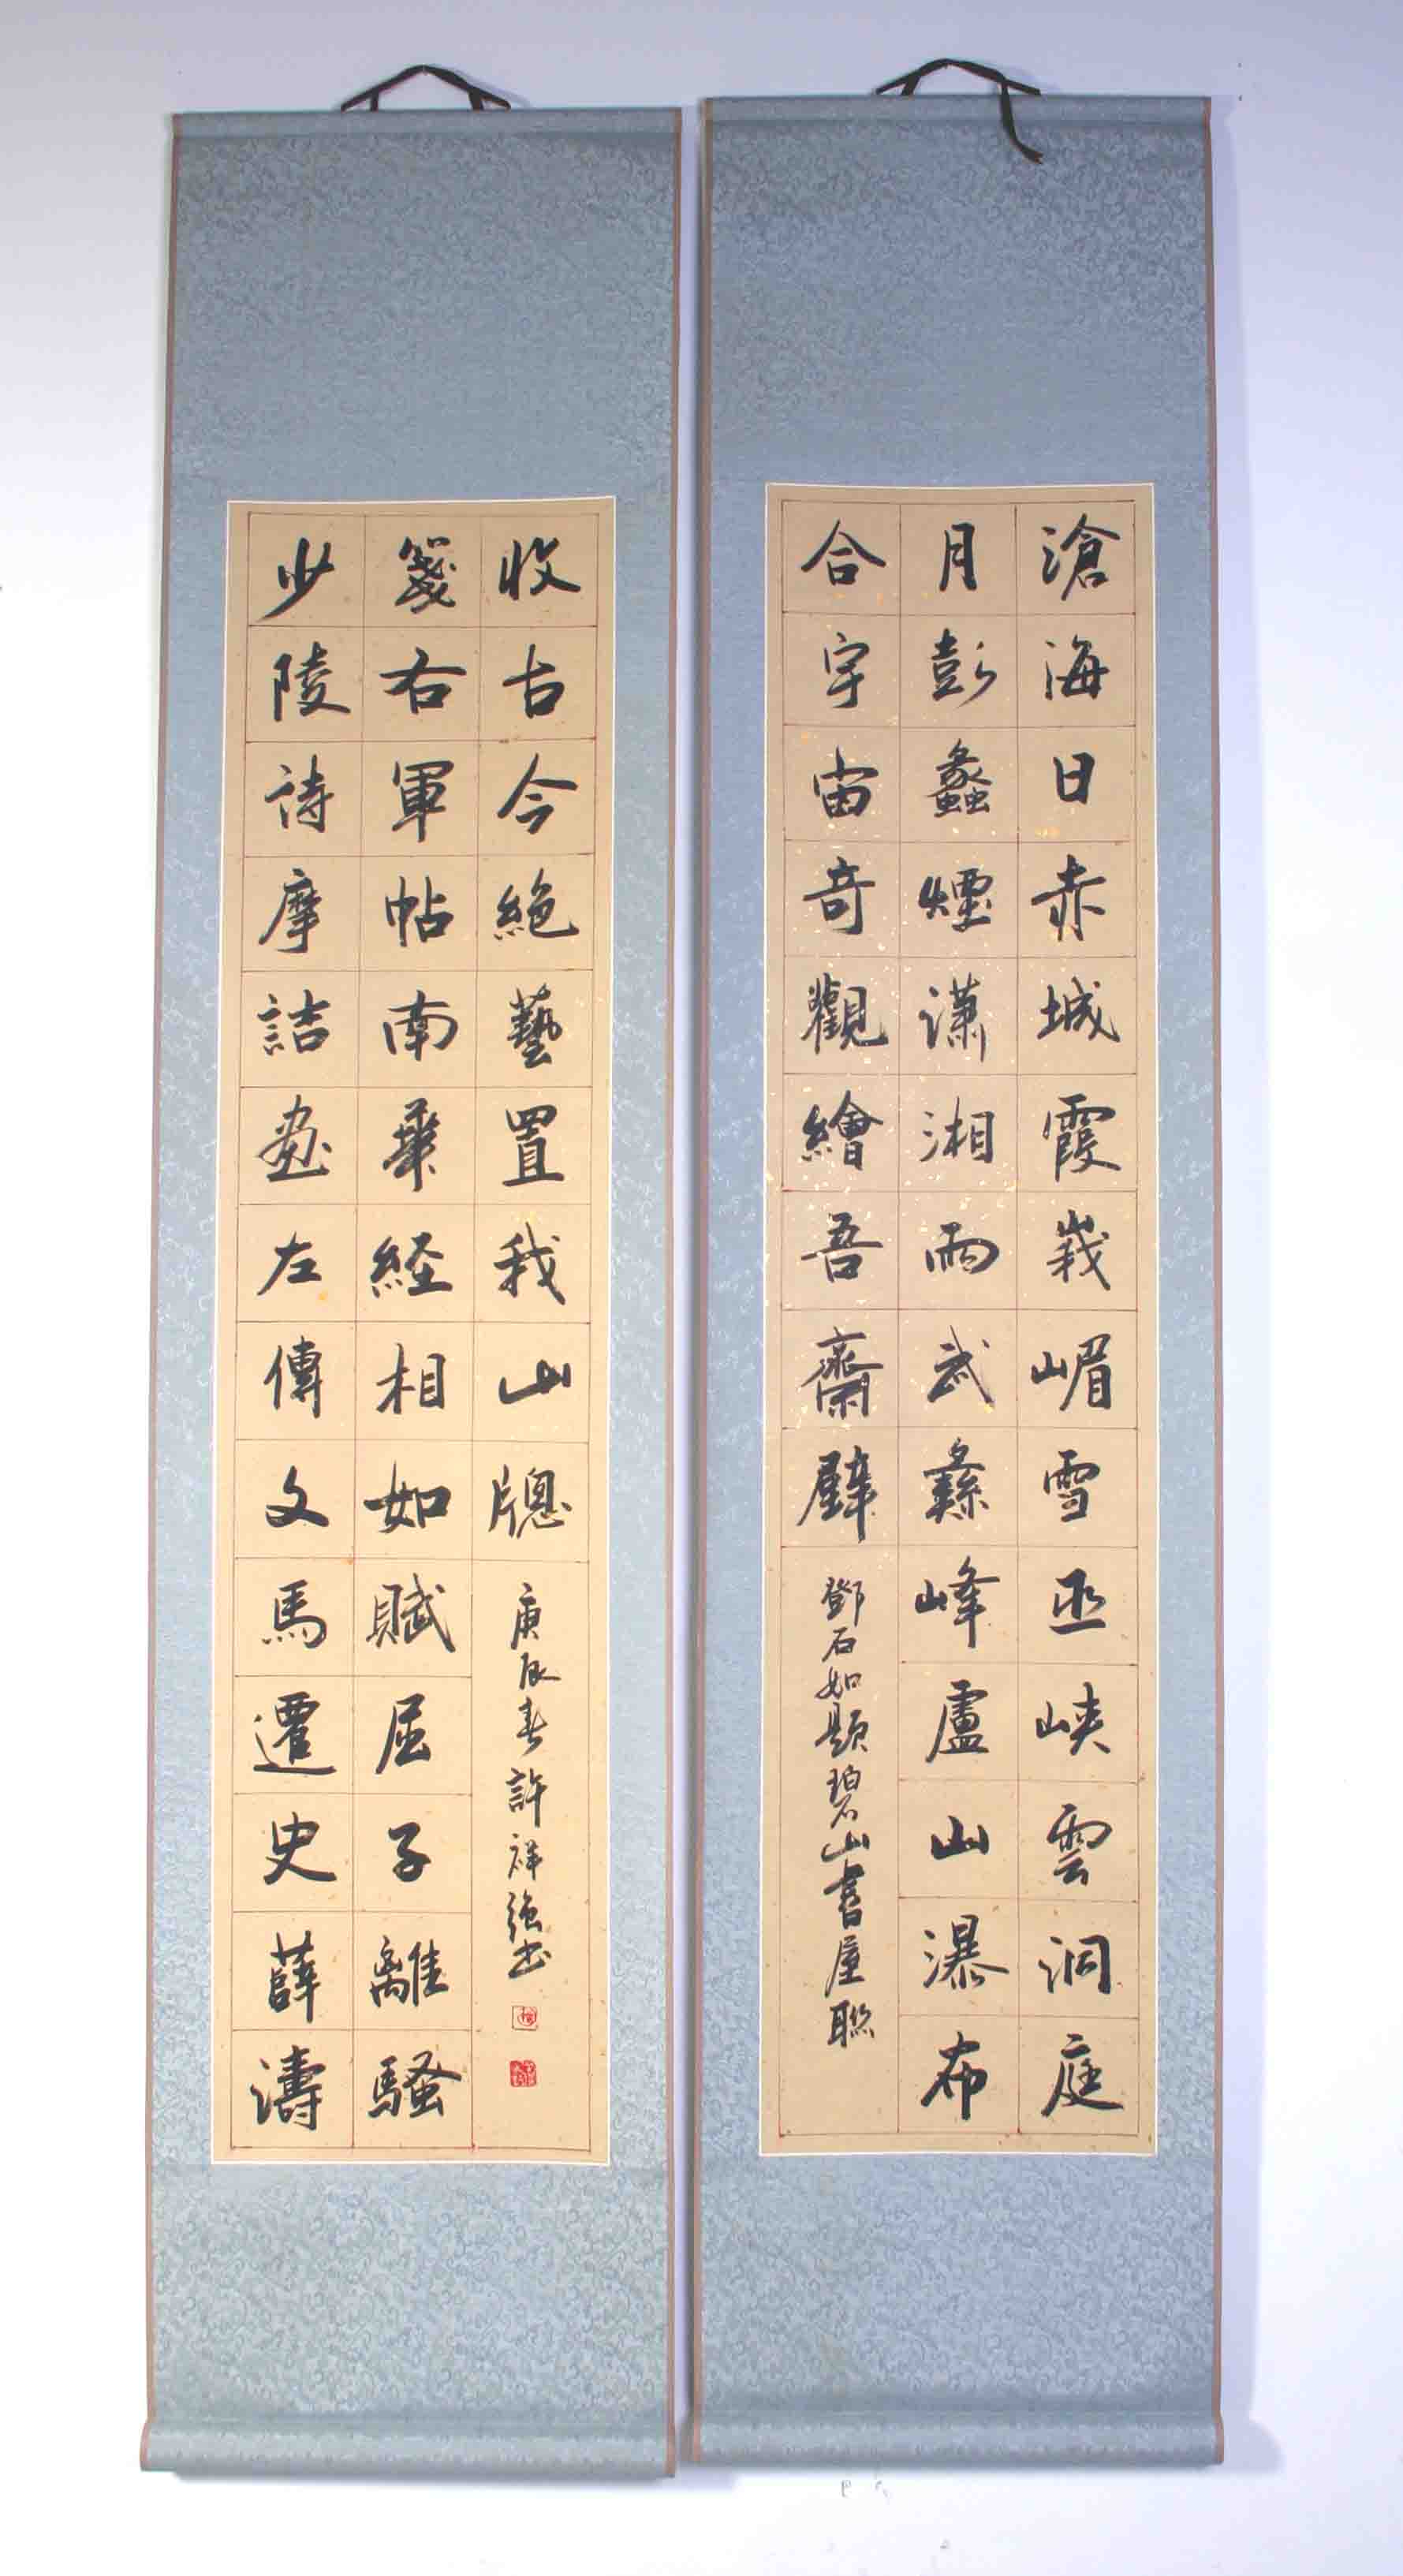 滄海日赤城霞峩嵋雪巫峽雲洞庭
月彭蠡煙瀟湘雨武彝峰盧山瀑布
合宇宙奇觀繪吾齋壁
鄧石如題碧山書屋聯
少陵詩摩詰畫左傳文馬遷史薛濤
箋右軍帖南華経相如賦屈子離騷
收古今絕藝置我山牕
庚辰春許祥強書